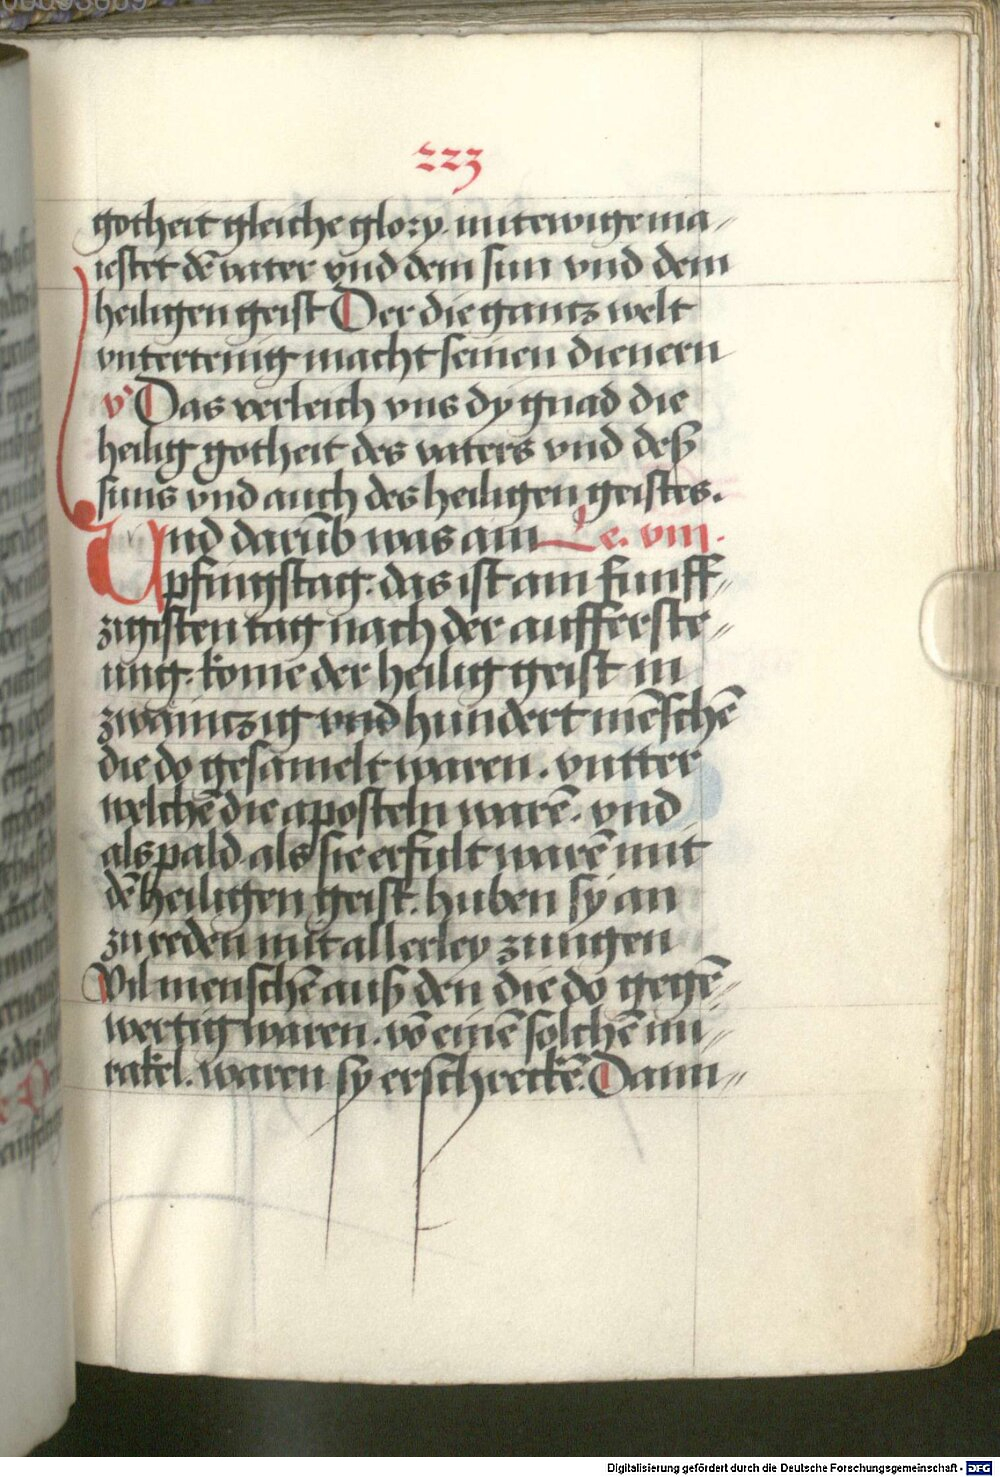 223
gotheit gleiche glory. mit ewige ma„
iestet dē vater vnd dem sun vnd dem
heiligen geist Der die gantz welt
vntertenig macht seinen dienern
v̕ Das verleich vns dy gnad die
heilig gotheit des vaters vnd deß
suns vnd auch des heiligen geistes.
Und darūb was am Le. viii.
pfingstag. das ist am funff„
zigisten tag nach der aufferste„
ung. kome der heilig geist in
zwaintzig vnd hundert mēschē
die do gesamelt waren. vntter
welchē die aposteln warē. vnd
als pald als sie erfult warē mit
dē heiligen geist. huben sy an
zu reden mit allerley zungen
Vil menschē auß den die do gegē„
wertig waren. vō einē solchē mi„
rakel. waren sy erschreckē. Dann„
Digitalisierung gefördert durch die Deutsche Forschungsgemeinschaft - DFG